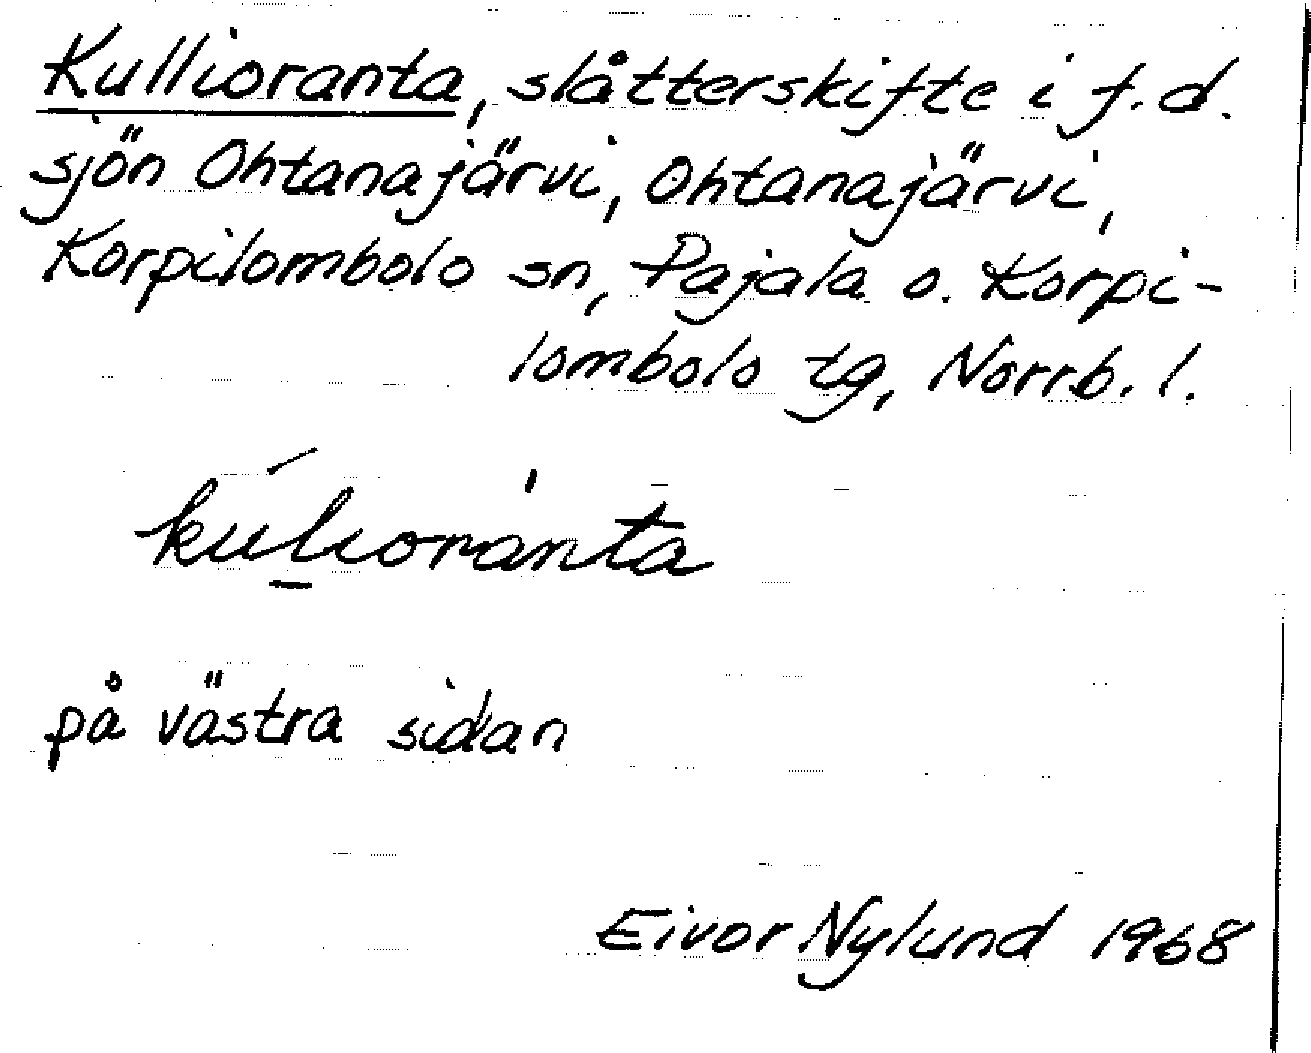 Kullioranta, slåtterskifte i f.d.
sjön Ohtanajärvi, Ohtanajärvi,
Korpilombolo sn, Pajala o. Korpi-
lombolo tg, Norrb. l.
kuĺ̠iorànta
på västra sidan
Eivor Nylund 1968